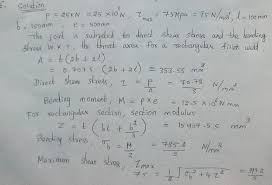 5. Solution
P = 25kN = 25 × 10³ N, τmax = 75 MPa = 75 N/mm², l = 100 mm
b = 150mm e = 500mm
The joint is subjected to direct shear stress and the bending
stress W.K.T, the throat area for a rectangular fillet weld
A = t(2b + 2l)
= 0.707s (2b + 2l) = 353.55 mm²
Direct shear stress, τ = P/A = 70.78/s N/mm²
Bending moment, M = P × e = 12.5 × 10⁶ N-mm
For rectangular section, section modulus
Z = t (bl + b²/3) = 15907.5 s mm³
Bending stress, σb = M/Z = 785.8/s N/mm²
Maximum shear stress, τmax
75 = 1/2 √σb² + 4τ² =